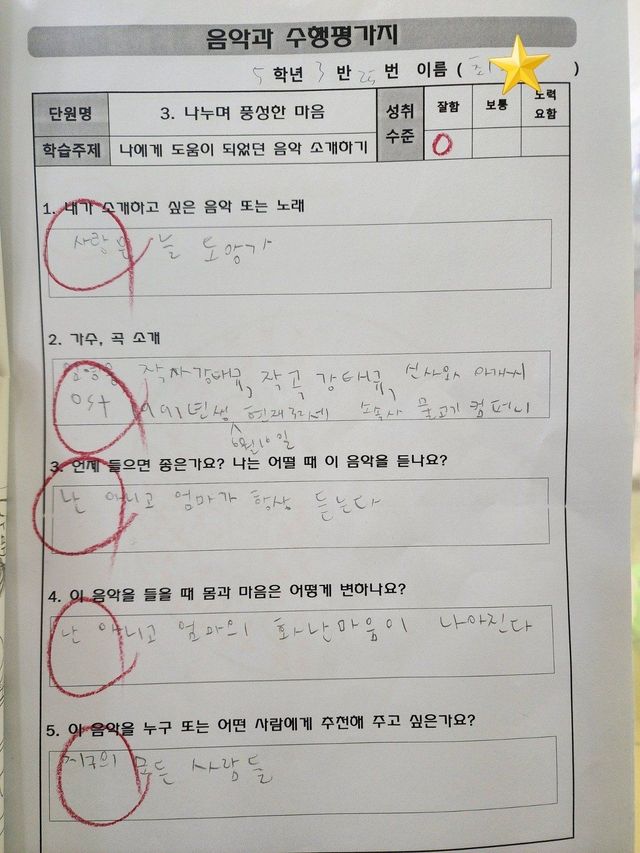 음악과 수행평가지
5 학년 3 반 번 이름 ( 최 )
단원명 3. 나누며 풍성한 마음 성취 수준 잘함 보통 노력 요함
학습주제 나에게 도움이 되었던 음악 소개하기 O
1. 내가 소개하고 싶은 음악 또는 노래
사랑은 늘 도망가
2. 가수, 곡 소개
임영웅 작사강태규, 작곡 강태규, 신사와 아가씨
OST 1991년생 현재32세 소속사 물고기 컴퍼니
6월16일
3. 언제 들으면 좋은가요? 나는 어떨 때 이 음악을 듣나요?
난 아니고 엄마가 항상 듣는다
4. 이 음악을 들을 때 몸과 마음은 어떻게 변하나요?
난 아니고 엄마의 화난마음이 나아진다
5. 이 음악을 누구 또는 어떤 사람에게 추천해 주고 싶은가요?
지구의 모든 사람들